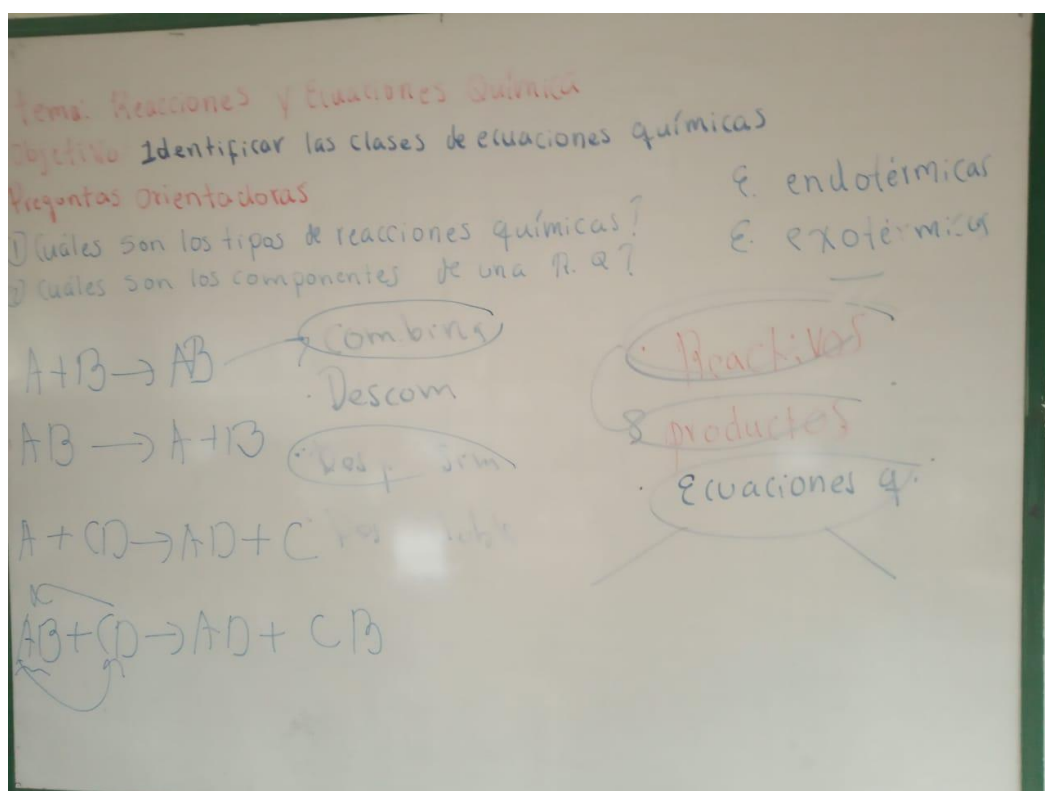 Tema: Reacciones y Ecuaciones Química
Objetivo Identificar las clases de ecuaciones químicas
Preguntas Orientadoras
① Cuáles son los tipos de reacciones químicas?
② Cuáles son los componentes de una R. Q?
E. endotérmicas
E. exotérmicas
A+B→AB
Combina
· Descom
AB→A+B
A+CD→AD+C
AB+CD→AD+CB
· Reactivos
productos
· Ecuaciones q.